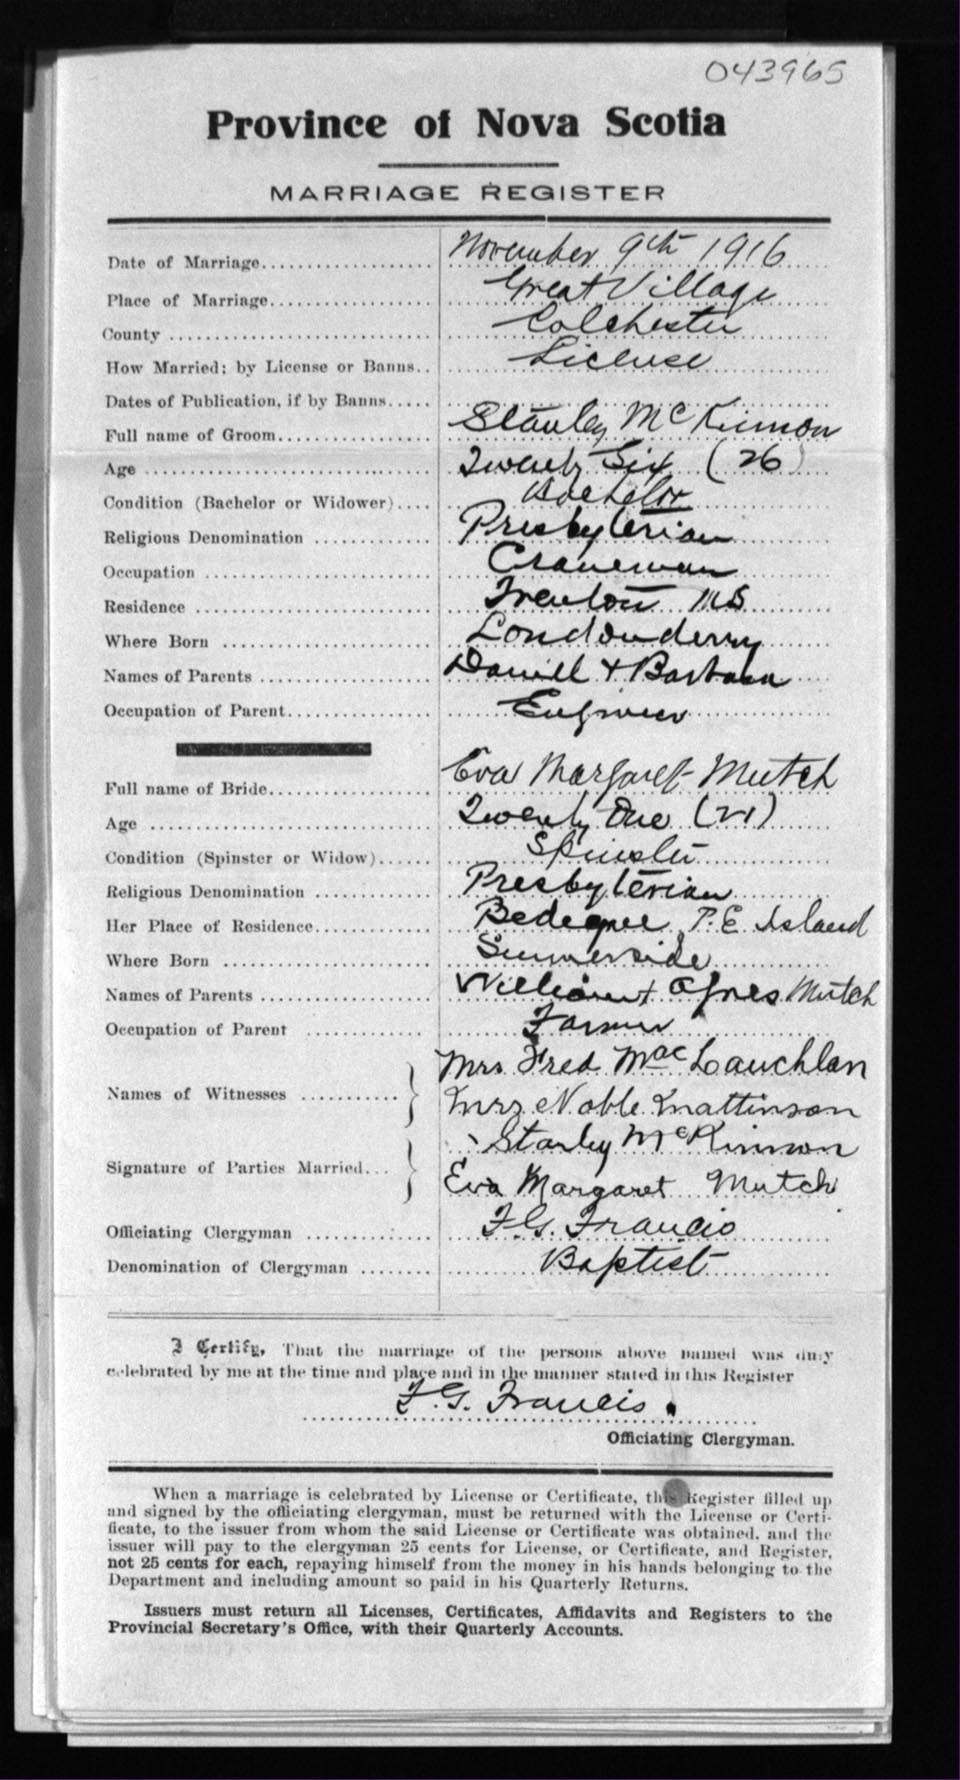 043965
Province of Nova Scotia
MARRIAGE REGISTER
Date of Marriage.................... November 9th 1916
Place of Marriage.................... Great Village
County .............................. Colchester
How Married; by License or Banns.. License
Dates of Publication, if by Banns.....
Full name of Groom.................. Stanley McKinnon
Age ................................ Twenty Six (26)
Condition (Bachelor or Widower).... Bachelor
Religious Denomination ............. Presbyterian
Occupation ......................... Craneman
Residence .......................... Trenton NS
Where Born ......................... Londonderry
Names of Parents ................... Daniell + Barbara
Occupation of Parent................ Engineer
Full name of Bride.................. Eva Margaret Mutch
Age ................................ Twenty One (21)
Condition (Spinster or Widow)...... Spinster
Religious Denomination ............. Presbyterian
Her Place of Residence.............. Bedeque P.E. Island
Where Born ......................... Summerside
Names of Parents ................... William + Agnes Mutch
Occupation of Parent ............... Farmer
Mrs Fred MacLauchlan
Names of Witnesses ........... Mrs Noble Mattinson
Stanley McKinnon
Signature of Parties Married... Eva Margaret Mutch
Officiating Clergyman ............. F.G. Francis
Denomination of Clergyman ........ Baptist
I Certify, That the marriage of the persons above named was duly
celebrated by me at the time and place and in the manner stated in this Register
F.G. Francis
Officiating Clergyman.
When a marriage is celebrated by License or Certificate, this Register filled up
and signed by the officiating clergyman, must be returned with the License or Certi-
ficate, to the issuer from whom the said License or Certificate was obtained, and the
issuer will pay to the clergyman 25 cents for License, or Certificate, and Register,
not 25 cents for each, repaying himself from the money in his hands belonging to the
Department and including amount so paid in his Quarterly Returns.
Issuers must return all Licenses, Certificates, Affidavits and Registers to the
Provincial Secretary's Office, with their Quarterly Accounts.